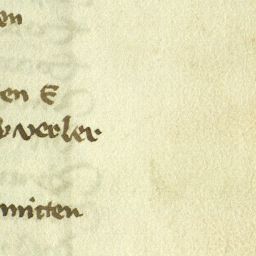 en
en E
verler
mitten